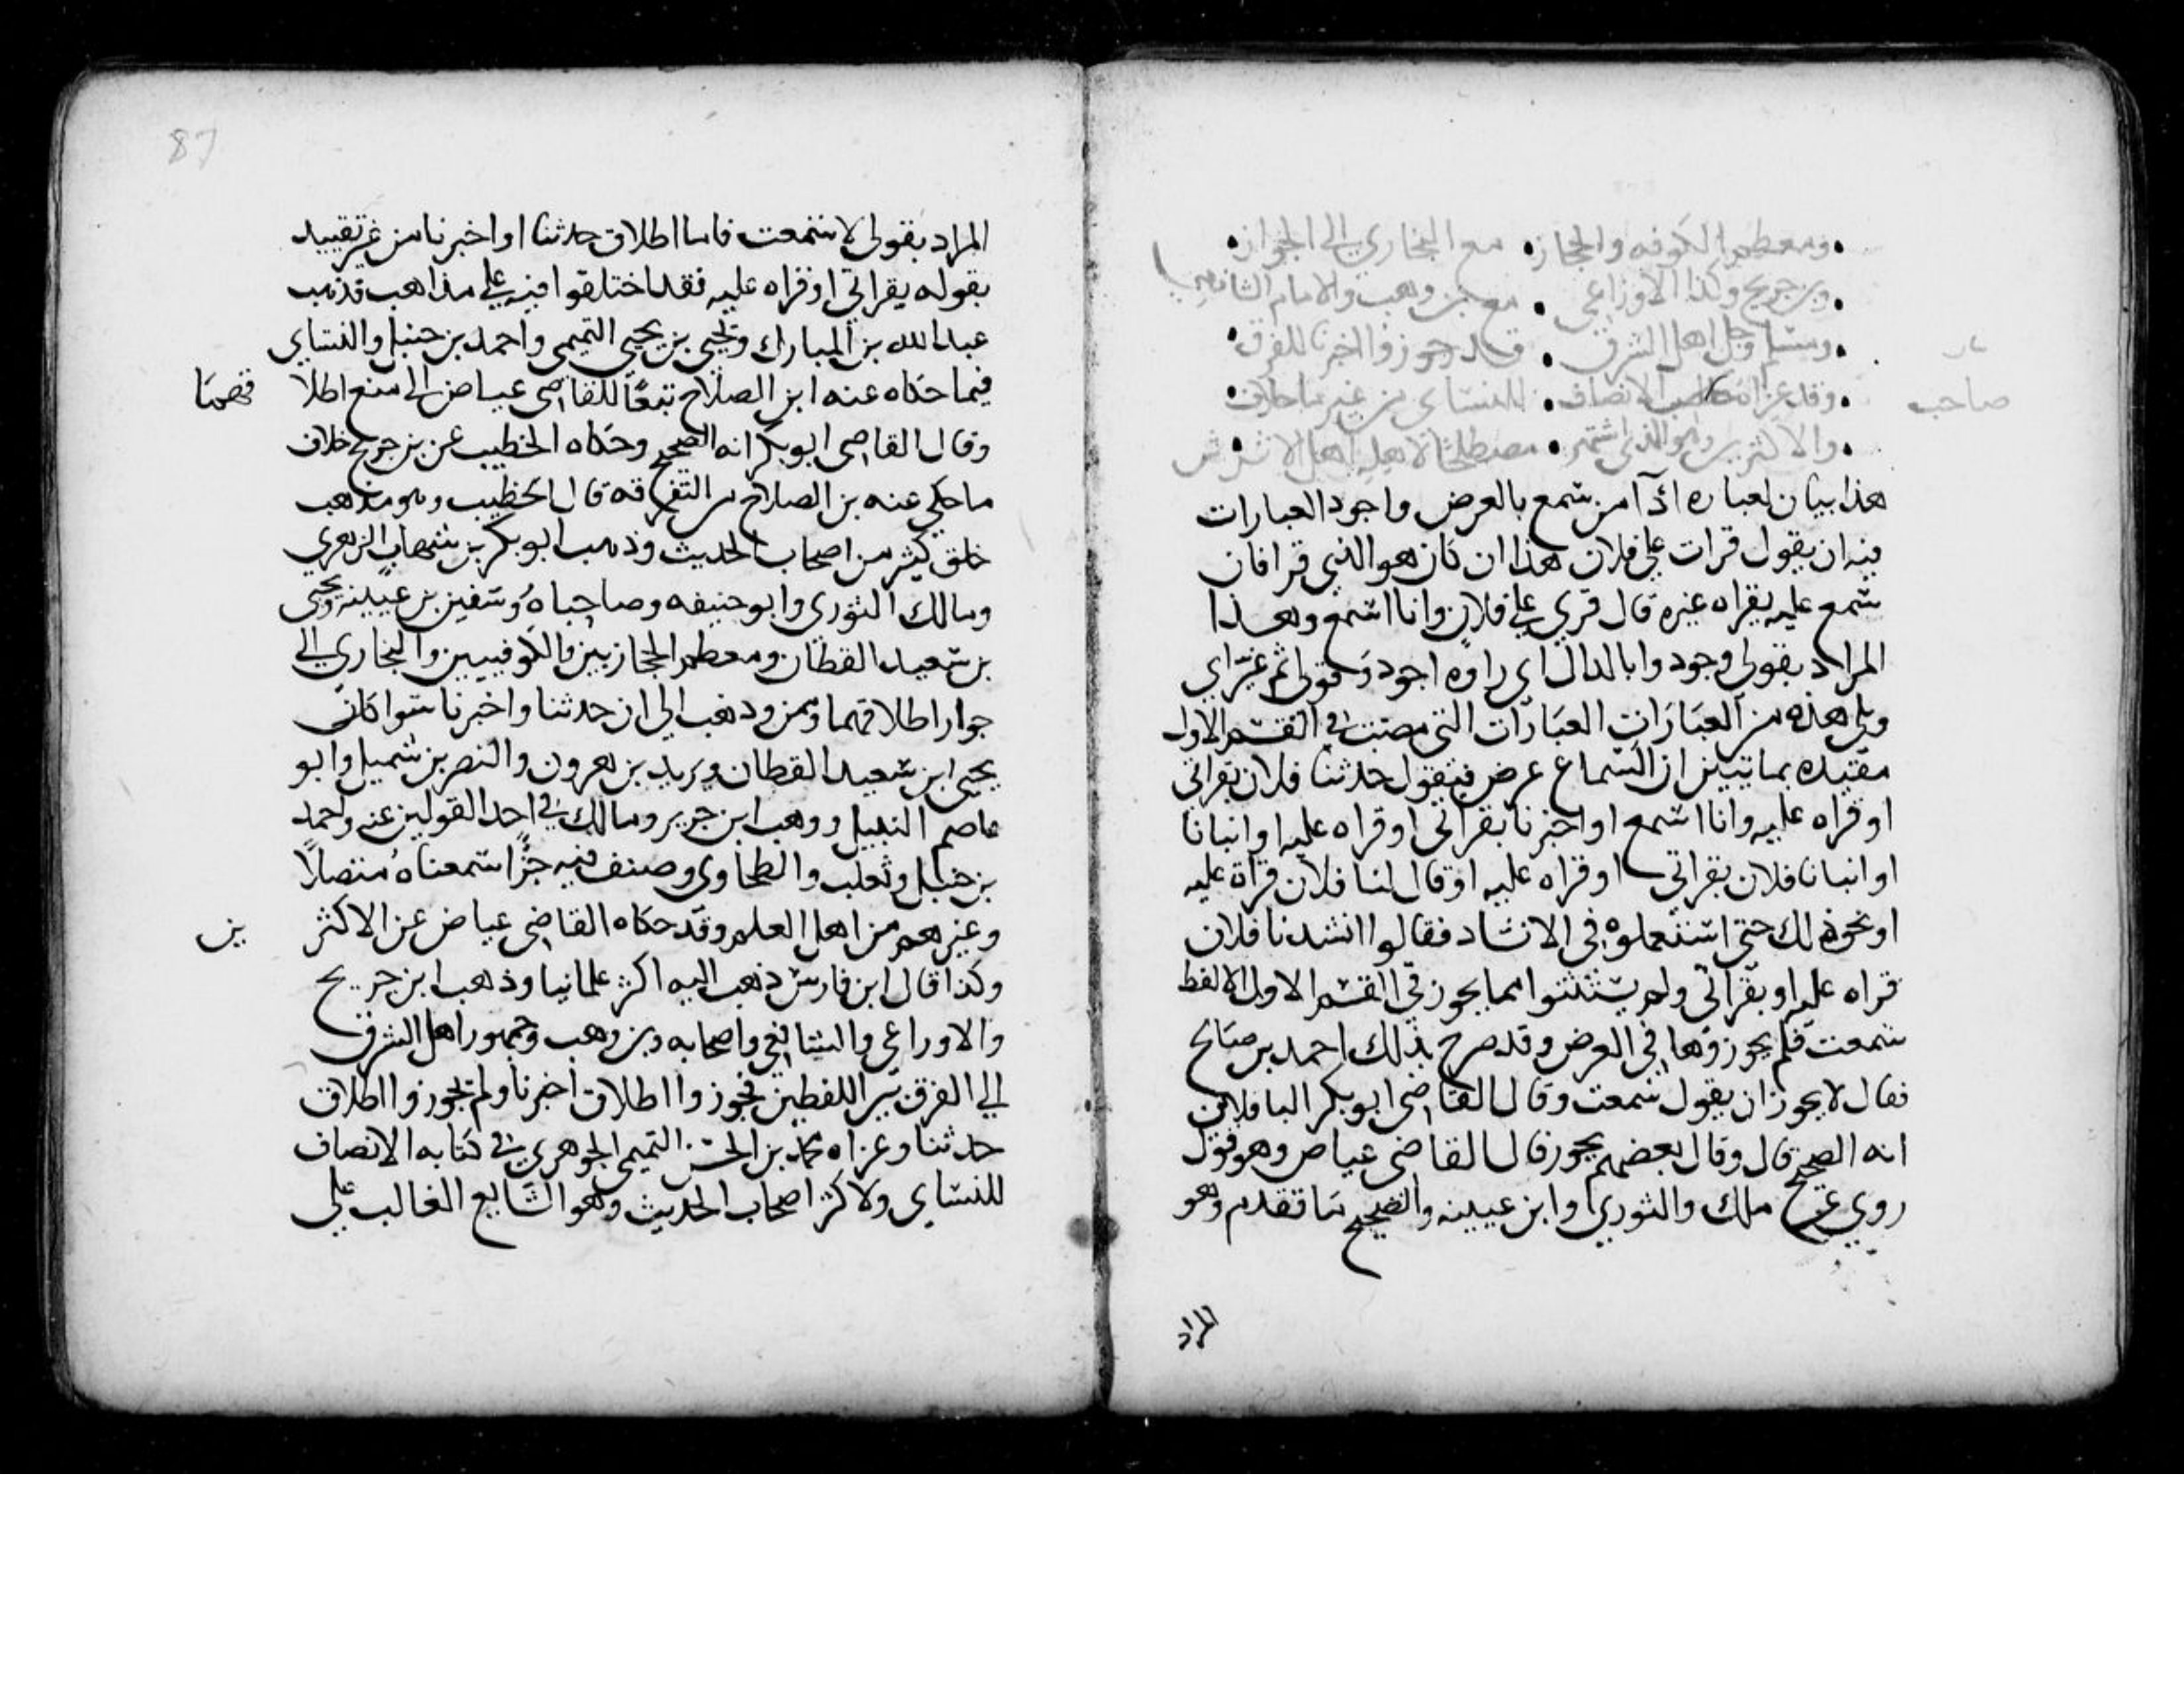 ومعظم الكوفه والحجاز . مع البخاري الى الجواز
وبن جريج وكذا الاوزاعي . مع بن وهب والامام الشافعي
ومسلم وجل اهل الشرق . قد جوزوا اخبرنا للفرق
وقد عزاه صاحب الانصاف . للنسائي من غير ما خلاف
صاحب
والاكثرين وهو الذي اشتهر . مصطلحا لاهله اهل الاثر ش
هذا بيان لعباره ادآ من سمع بالعرض واجود العبارات
فيه ان يقول قرات علي فلان هذا ان كان هو الذي قرا فان
سمع عليه بقراه غيره قال قري علي فلان وانا اسمع وهذا
المراد بقولي وجودوا بالدال اي راوه اجود وقولي ثم عبر اي
ويلي هذه من العبارات العبارات التي مضت في القسم الاول
مقيده بما تبين ان السماع عرض فيقول حدثنا فلان بقراتي
او قراه عليه وانا اسمع او اخبرنا بقراتي او قراه عليه او انبانا
او انبانا فلان بقراتي او قراه عليه او قال لنا فلان قراة عليه
او نحو ذلك حتى استعملوه في الانشاد فقالوا انشدنا فلان
قراه عليه او بقراتي ولم يستثنوا مما يجوز في القسم الاول الا لفظ
سمعت فلم يجوزوها في العرض وقد صرح بذلك احمد بن صالح
فقال لا يجوز ان يقول سمعت وقال القاضي ابو بكر الباقلاني
انه الصحيح قال وقال بعضهم يجوز قال القاضي عياض وهو قول
روي عن ملك والثوري وابن عيينه والصحيح ما تقدم وهو
المراد
87
المراد بقولي لا سمعت فاما اطلاق حدثنا او اخبرنا من غير تقييد
بقوله بقراتي او قراه عليه فقد اختلفوا فيه علي مذاهب فذهب
عبد الله بن المبارك ويحيى بن يحيى التميمي واحمد بن حنبل والنساي
فيما حكاه عنه ابن الصلاح تبعًا للقاضي عياض الى منع اطلا قهما
وقال القاضي ابو بكر انه الصحيح وحكاه الخطيب عن بن جريج خلاف
ما حكي عنه بن الصلاح من التفرقه قال الخطيب وهو مذهب
خلق كثير من اصحاب الحديث وذهب ابو بكر بن شهاب الزهري
ومالك الثوري وابو حنيفه وصاحباه وسفين بن عيينه ويحيى
بن سعيد القطان ومعظم الحجازيين والكوفيين والبخاري الى
جواز اطلاقهما وممن ذهب الى ان حدثنا واخبرنا سوا كاتى
يحيى ابن سعيد القطان ويزيد بن هرون والنضر بن شميل وابو
عاصم النبيل ووهب ابن جرير ومالك في احد القولين عنه واحمد
بن حنبل وثعلب والطحاوي وصنف فيه جزًا سمعناه متصلاً
وغيرهم من اهل العلم وقد حكاه القاضي عياض عن الاكثر ين
وكذا قال ابن فارس ذهب اليه اكثر علمائنا وذهب ابن جريج
والاوزاعي والشافعي واصحابه وبن وهب وجمهور اهل الشرق
الي الفرق بين اللفظين فجوزوا اطلاق اخبرنا ولم يجوزوا اطلاق
حدثنا وعزاه محمد بن الحسن التميمي الجوهري في كتابه الانصاف
للنساي ولاكثر اصحاب الحديث وهو الشايع الغالب علي